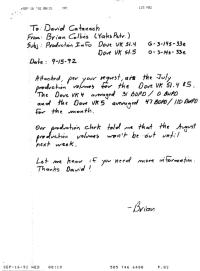 To: David Catanach
From: Brian Collins (Yates Petr.)
Subj: Production Info Dove VK St. 4 G-3-19S-33e
Dove VK St. 5 O-3-19S-33e
Date: 9-15-92
Attached, per your request, are the July
production volumes for the Dove VK St. 4 & 5.
The Dove VK 4 averaged 31 BOPD / 0 BWPD
and the Dove VK 5 averaged 47 BOPD / 110 BWPD
for the month.
Our production clerk told me that the August
production volumes won't be out until
next week.
Let me know if you need more information.
Thanks David!
-Brian
SEP-16-92 WED
505 746 6480 P.02